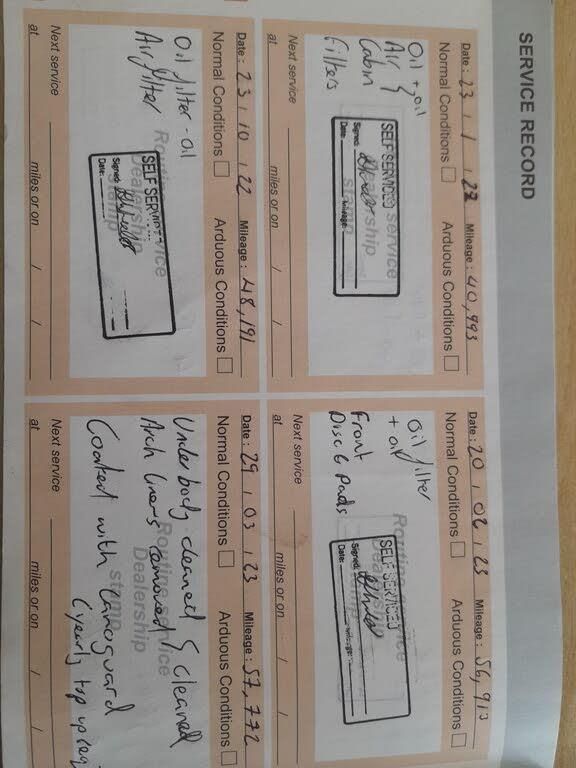 SERVICE RECORD
Date: 23 / 1 / 22 Mileage: 40,993
Normal Conditions Arduous Conditions
Oil + oil
Air &
Cabin
filters
Routine service
Dealership
stamp
SELF SERVICED
Signed:
Date: Mileage:
Next service
at miles or on / /
Date: 20 / 02 / 23 Mileage: 56,913
Normal Conditions Arduous Conditions
Oil filter
+ oil
Front
Disc & Pads
Routine service
Dealership
stamp
SELF SERVICED
Signed:
Date: Mileage:
Next service
at miles or on / /
Date: 23 / 10 / 22 Mileage: 48,191
Normal Conditions Arduous Conditions
Oil filter - oil
Air filter
Routine service
Dealership
stamp
SELF SERVICED
Signed:
Date:
Next service
at miles or on / /
Date: 29 / 03 / 23 Mileage: 57,772
Normal Conditions Arduous Conditions
Underbody cleaned & cleaned
Arch liners removed
Coated with Lanoguard
(yearly top up req
Routine service
Dealership
stamp
Next service
at miles or on / /